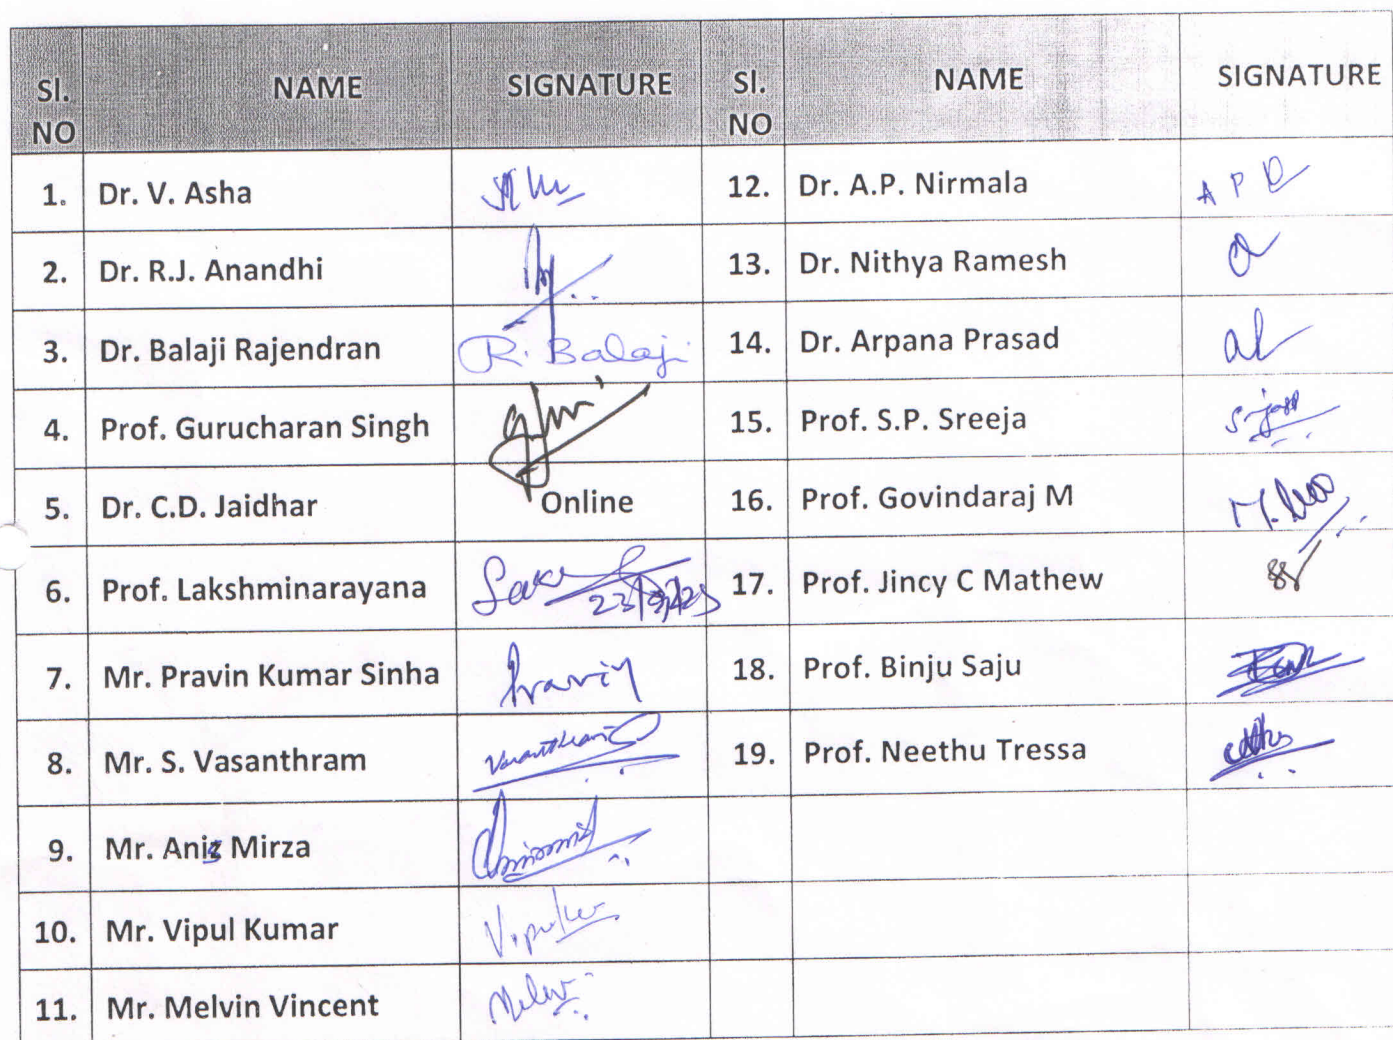 Sl. NO NAME SIGNATURE Sl. NO NAME SIGNATURE
1. Dr. V. Asha 12. Dr. A.P. Nirmala A P
2. Dr. R.J. Anandhi 13. Dr. Nithya Ramesh
3. Dr. Balaji Rajendran R. Balaji 14. Dr. Arpana Prasad
4. Prof. Gurucharan Singh 15. Prof. S.P. Sreeja
5. Dr. C.D. Jaidhar Online 16. Prof. Govindaraj M
6. Prof. Lakshminarayana 17. Prof. Jincy C Mathew
7. Mr. Pravin Kumar Sinha Pravin 18. Prof. Binju Saju
8. Mr. S. Vasanthram Vasanthram 19. Prof. Neethu Tressa
9. Mr. Anis Mirza
10. Mr. Vipul Kumar
11. Mr. Melvin Vincent